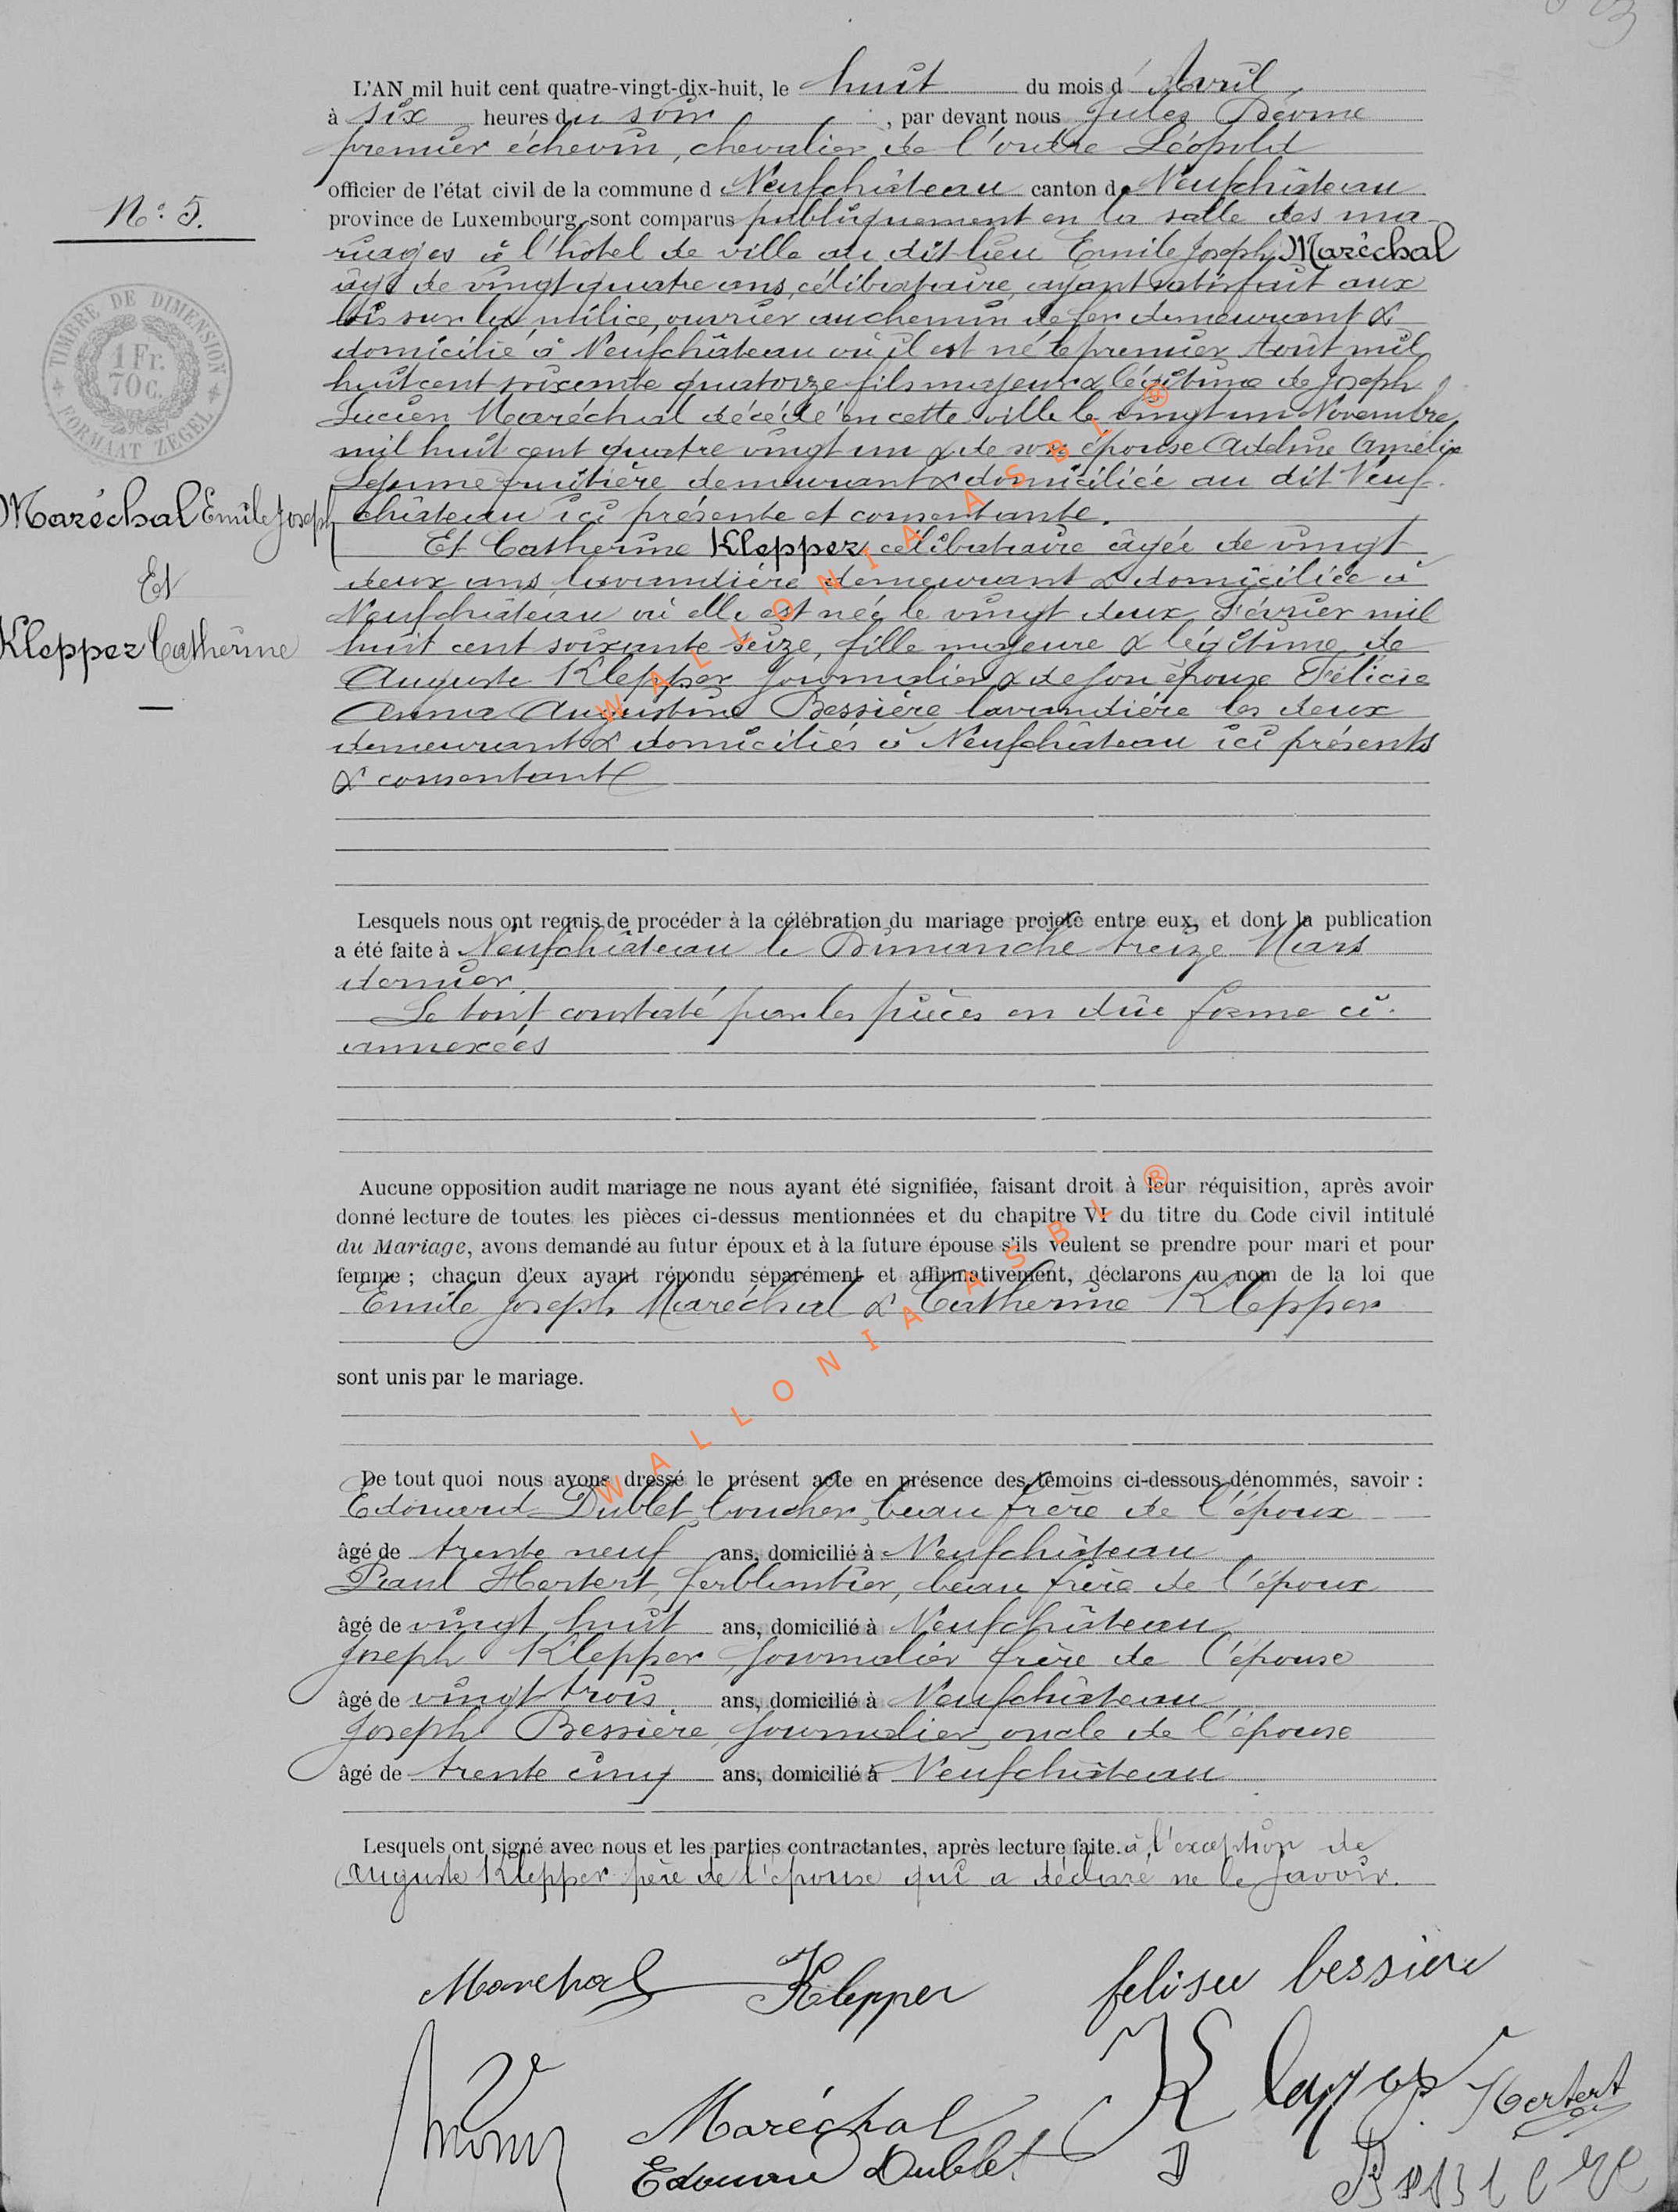 L'AN mil huit cent quatre-vingt-dix-huit, le huit du mois d'Avril
à six heures du soir, par devant nous Jules
premier échevin, chevalier de l'ordre Léopold
officier de l'état civil de la commune d Neufchâteau canton de Neufchâteau
province de Luxembourg sont comparus publiquement en la salle des ma-
riages à l'hôtel de ville au dit lieu Emile Joseph Maréchal
âgé de vingt quatre ans, célibataire, ayant satisfait aux
lois sur la milice, ouvrier au chemin de fer demeurant &
domicilié à Neufchâteau où il est né le premier Août mil
huit cent soixante quatorze fils majeur & légitime de Joseph
Lucien Maréchal décédé en cette ville le vingt un Novembre
mil huit cent quatre vingt un & de son épouse Adeline Amélie
Lejeune fruitière demeurant & domiciliée au dit Neuf-
château ici présente et consentante.
Et Catherine Klepper célibataire âgée de vingt
deux ans, lavandière demeurant & domiciliée à
Neufchâteau où elle est née le vingt deux Février mil
huit cent soixante seize, fille majeure & légitime de
Auguste Klepper journalier & de son épouse Félicie
Anna Augustine Bessière, lavandière les deux
demeurant & domiciliés à Neufchâteau ici présents
& consentant
N° 5.
TIMBRE DE DIMENSION
1 Fr.
70 c.
FORMAAT ZEGEL
Maréchal Emile Joseph
Et
Klepper Catherine
Lesquels nous ont requis de procéder à la célébration du mariage projeté entre eux, et dont la publication
a été faite à Neufchâteau le Dimanche treize Mars
dernier.
Le tout constaté par les pièces en dûe forme ci-
annexées
Aucune opposition audit mariage ne nous ayant été signifiée, faisant droit à leur réquisition, après avoir
donné lecture de toutes les pièces ci-dessus mentionnées et du chapitre VI du titre du Code civil intitulé
du Mariage, avons demandé au futur époux et à la future épouse s'ils veulent se prendre pour mari et pour
femme ; chacun d'eux ayant répondu séparément et affirmativement, déclarons au nom de la loi que
Emile Joseph Maréchal & Catherine Klepper
sont unis par le mariage.
De tout quoi nous avons dressé le présent acte en présence des témoins ci-dessous dénommés, savoir :
Edouard Dublet, boucher, beau frère de l'époux
âgé de trente neuf ans, domicilié à Neufchâteau
Paul Hertert, ferblantier, beau frère de l'époux
âgé de vingt huit ans, domicilié à Neufchâteau
Joseph Klepper journalier frère de l'épouse
âgé de vingt trois ans, domicilié à Neufchâteau
Joseph Bessière, journalier, oncle de l'épouse
âgé de trente cinq ans, domicilié à Neufchâteau
Lesquels ont signé avec nous et les parties contractantes, après lecture faite. à l'exception de
Auguste Klepper père de l'épouse qui a déclaré ne le savoir.
Marechal Klepper felisie bessiere
Maréchal Hertert
Edouard Dublet
WALLONIA ASBL ®
WALLONIA ASBL ®